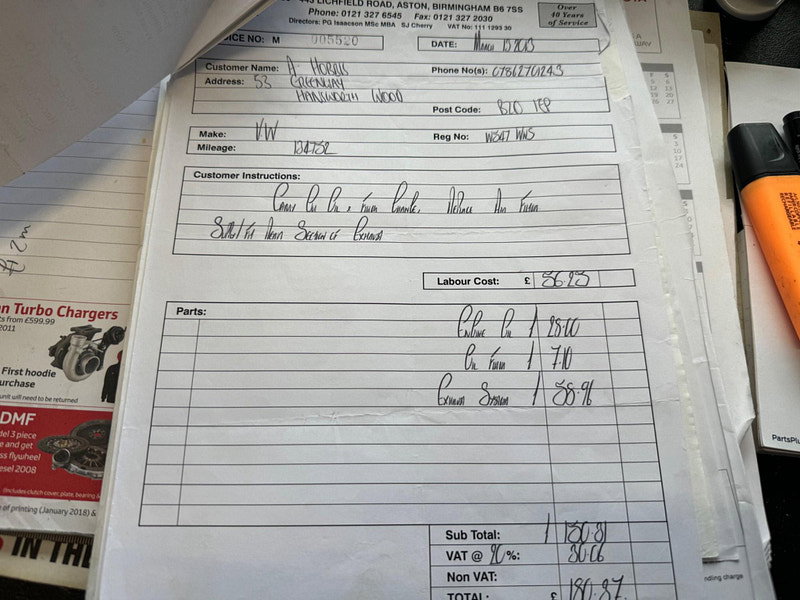 443 LICHFIELD ROAD, ASTON, BIRMINGHAM B6 7SS
Phone: 0121 327 6545 Fax: 0121 327 2030
Directors: PG Isaacson MSc MBA SJ Cherry VAT No: 111 1293 30
Over
40 Years
of Service
ICE NO: M 005520
DATE: March 15 2013
Customer Name: A. Hobbs
Phone No(s):
Address: 53 Greenway
Handsworth Wood
Post Code: B20 1EP
Make: VW
Reg No: WNS
Mileage:
Customer Instructions:
Carry Out Oil, Filter Change, Replace Air Filter
Supply/Fit Rear Section of Exhaust
Labour Cost: £ 56.25
Parts:
Engine Oil 28.00
Oil Filter 7.10
Exhaust System 58.96
Sub Total: 150.31
VAT @ 20%: 30.06
Non VAT:
TOTAL: £ 180.37
n Turbo Chargers
s from £599.99
2011
First hoodie
urchase
unit will need to be returned
DMF
del 3 piece
e and get
ss flywheel
esel 2008
(Includes clutch cover, plate, bearing &
of printing (January 2018) &
IN TH
PartsPlu
ndling charge